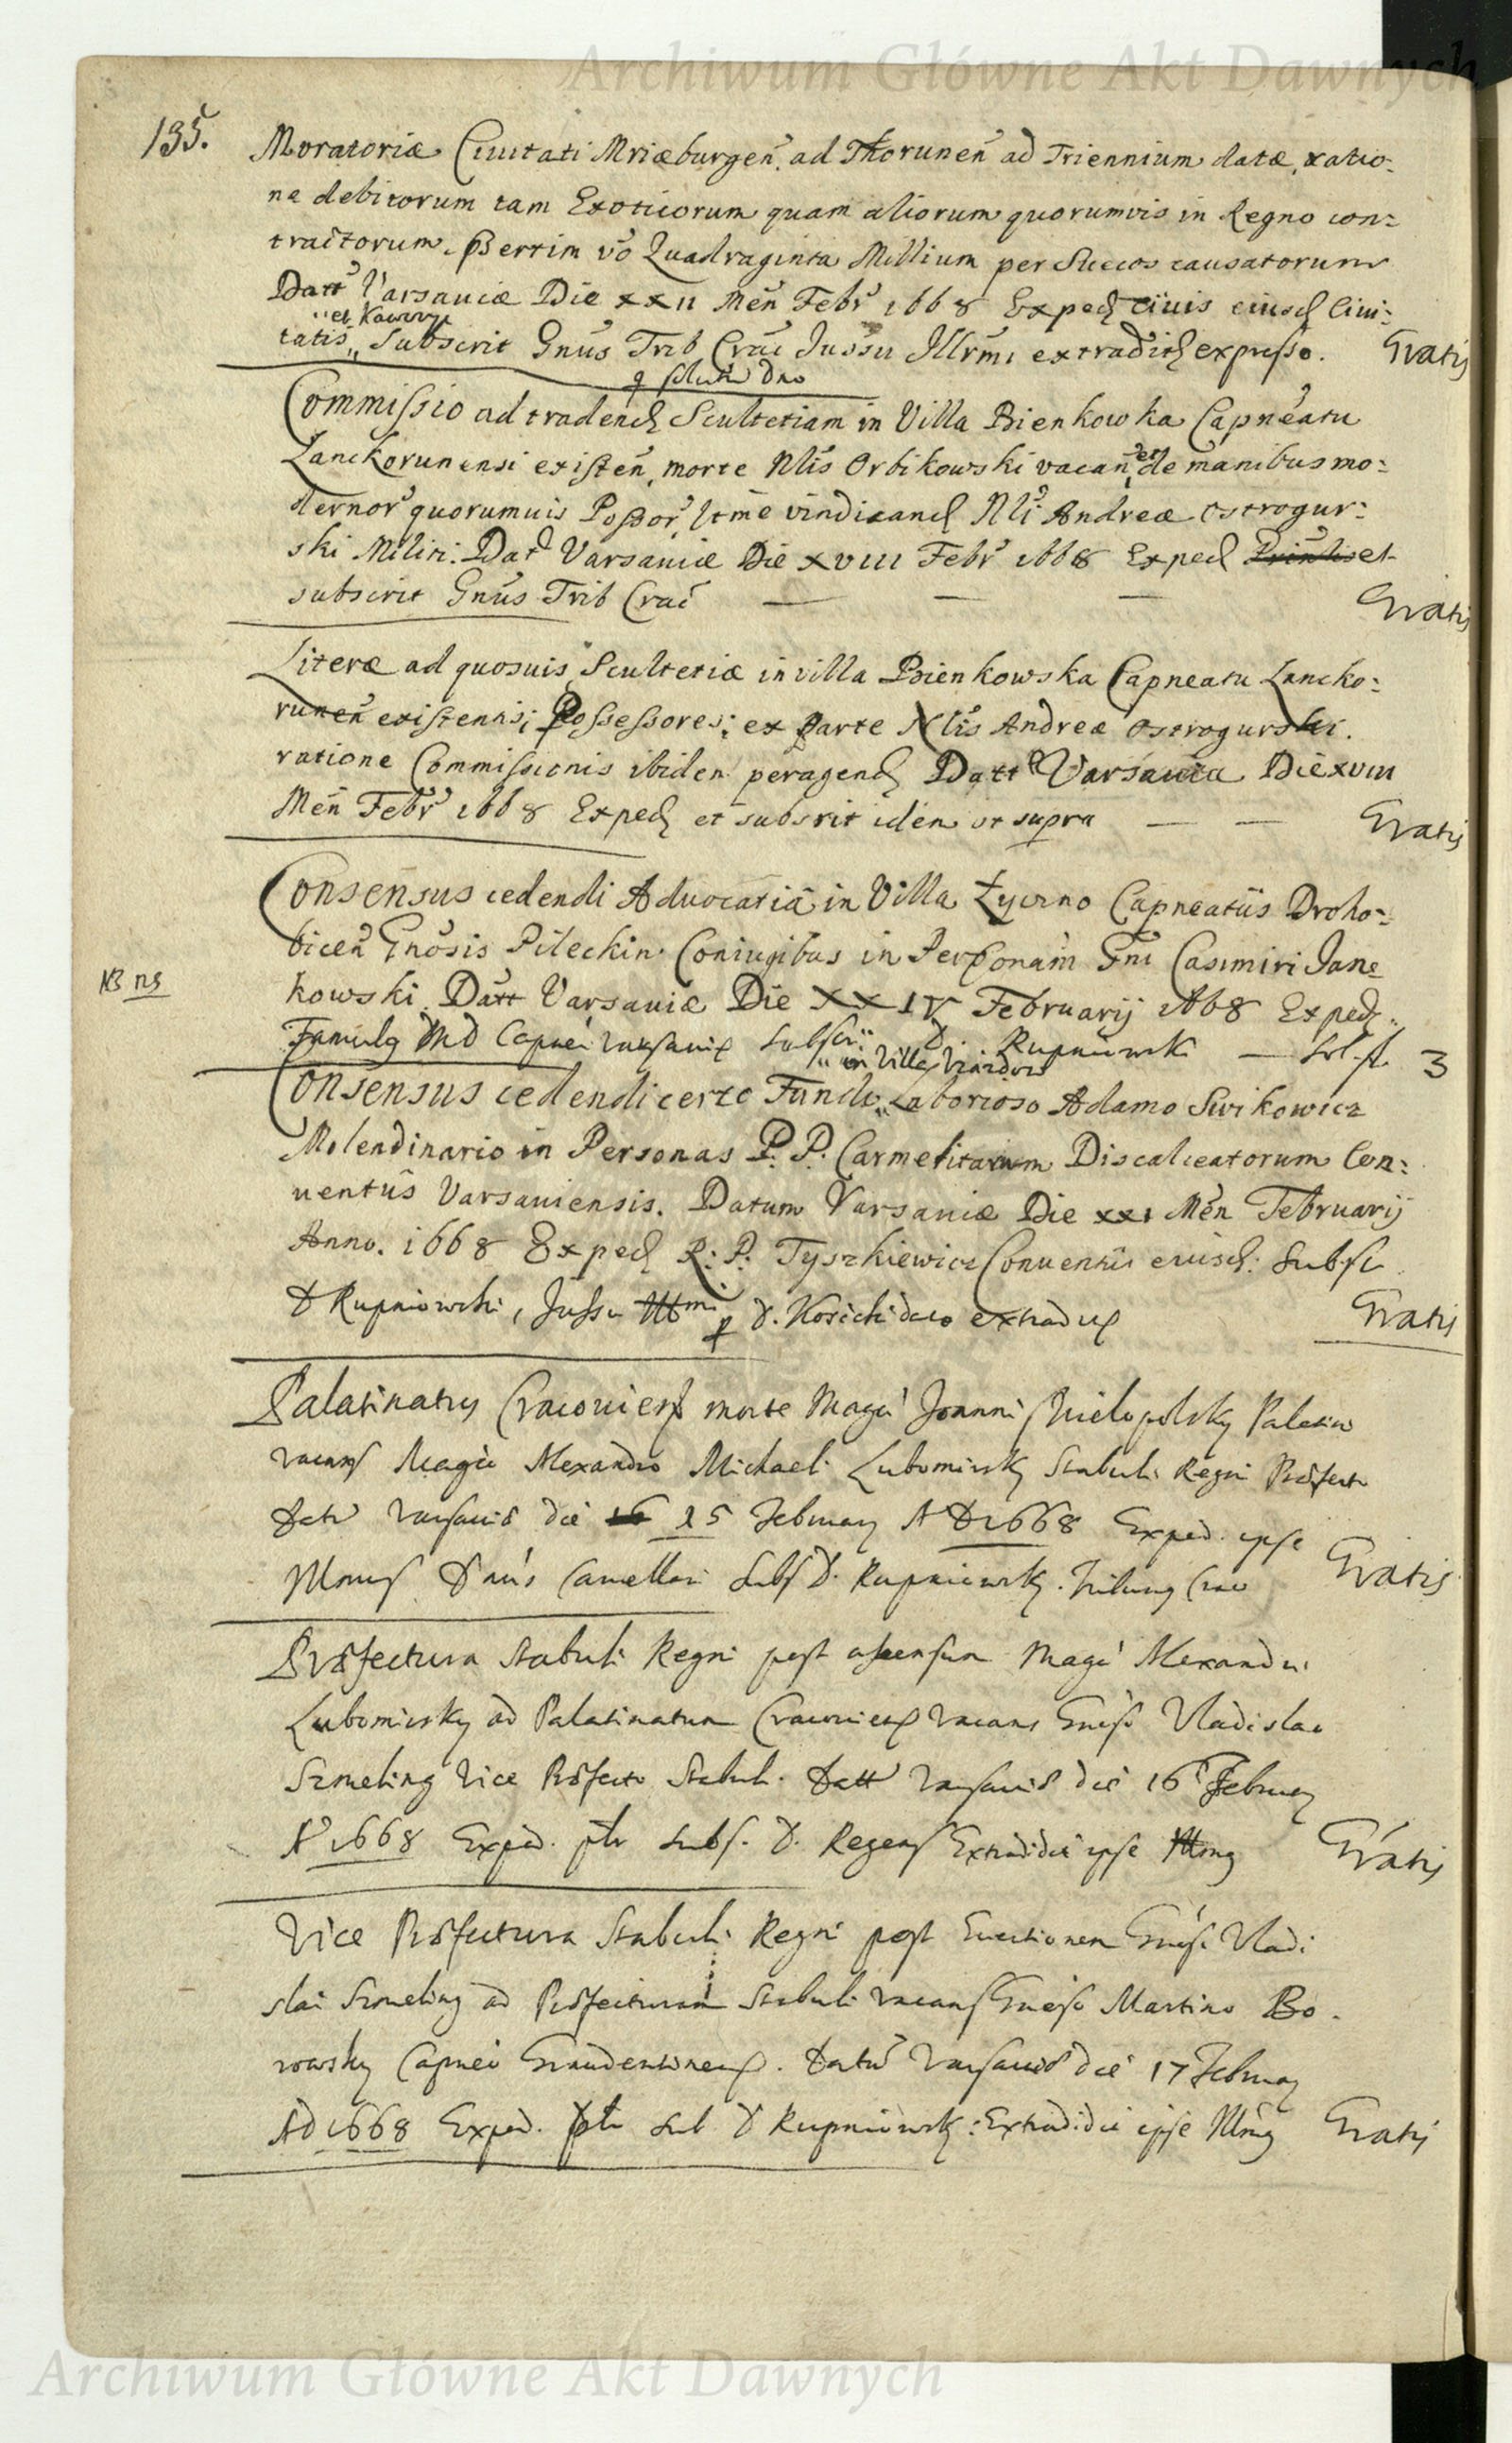 Archiwum Główne Akt Dawnych
135.
Moratoriæ Ciuitati Mriæburgeñ. ad Thoruneñ ad Triennium datæ, ratio-
ne debitorum tam Exoticorum quam aliorum quorumvis in Regno con:
tractorum, Psertim vo Quadraginta Millium per Suecos causatorum
Datt Varsauiæ Die xxII Meñ Febr 1668 Exped ciuis eiusd Ciui:
tatis, Subscrit Gnus Trib Crac Jussu Illrmi extradit expresso. Gratis
Commissio ad tradend Scultetiam in Villa Bienkowka Capneatu
Lanckorunensi existeñ, morte Nlis Orbikowski vacañ, et de manibus mo:
dernor quorumuis Possor ltme vindicand Nli Andreæ Ostrogur:
ski Militi. Dat Varsauiæ Die xvIII Febr 1668 Exped et
subscrit Gnus Trib Crac Gratis
Literæ ad quosuis Scultetiæ in villa Bienkowska Capneatu Lancko:
runeñ existentis; Possessores; ex Parte Nlis Andreæ Ostrogurski.
ratione Commissionis ibidem peragend Datt Varsauiæ Die xvIII
Meñ Febr 1668 Exped et subsrit idem ut supra Gratis
Consensus cedendi Aduocatiâ in Villa Zycino Capneatûs Droho-
biceñ Gnosis Pileckim Coniugibus in Personam Gni Casimiri Jane
NB ns
kowski. Datt Varsauiæ Die XXIV Februarij 1668 Exped.
D. Rupniowski 3
in Villa
Consensus cedendi certo Fundo Laborioso Adamo Swikowicz
Molendinario in Personas P. P. Carmelitarum Discalceatorum Con:
uentûs Varsauiensis. Datum Varsauiæ Die xxI Meñ Februarij
Anno. 1668 Exped R: P. Tyszkiewicz Conuentûs eiusd: Subsc
D Rupniowski, Jussu Illmi p D. Kosicki extradit Gratis
Palatinatus Cracoviens morte Magci Joannis Wielopolsky Palatini
vacans Magco Alexandro Michaeli Lubomirsky Stabuli Regni Præfecto
Datt Varsauiæ die 16 15 February AD 1668 Exped. ipse
Cancellari Subs D. Rupniowsky. Tribunus Crac Gratis
Præfectura Stabuli Regni post ascensum Magci Alexandri
Lubomirsky ad Palatinatum Cracoviens vacans Gnoso Vladislao
Szmeling Vice Præfecto Stabuli. Datt Varsauiæ die 16 February
Ao 1668 Exped. subs. D. Regens Extradidit ipse Gratis
Vice Præfectura Stabuli Regni post Euectionem Gnosi Vladi
slai Szmeling ad Præfecturam Stabuli vacans Gnoso Martino Bo-
rowsky Capneo Graudentinens. Datt Varsauiæ die 17 February
AD 1668 Exped. sub D Rupniowsky: Extradidit ipse Gratis
Archiwum Główne Akt Dawnych